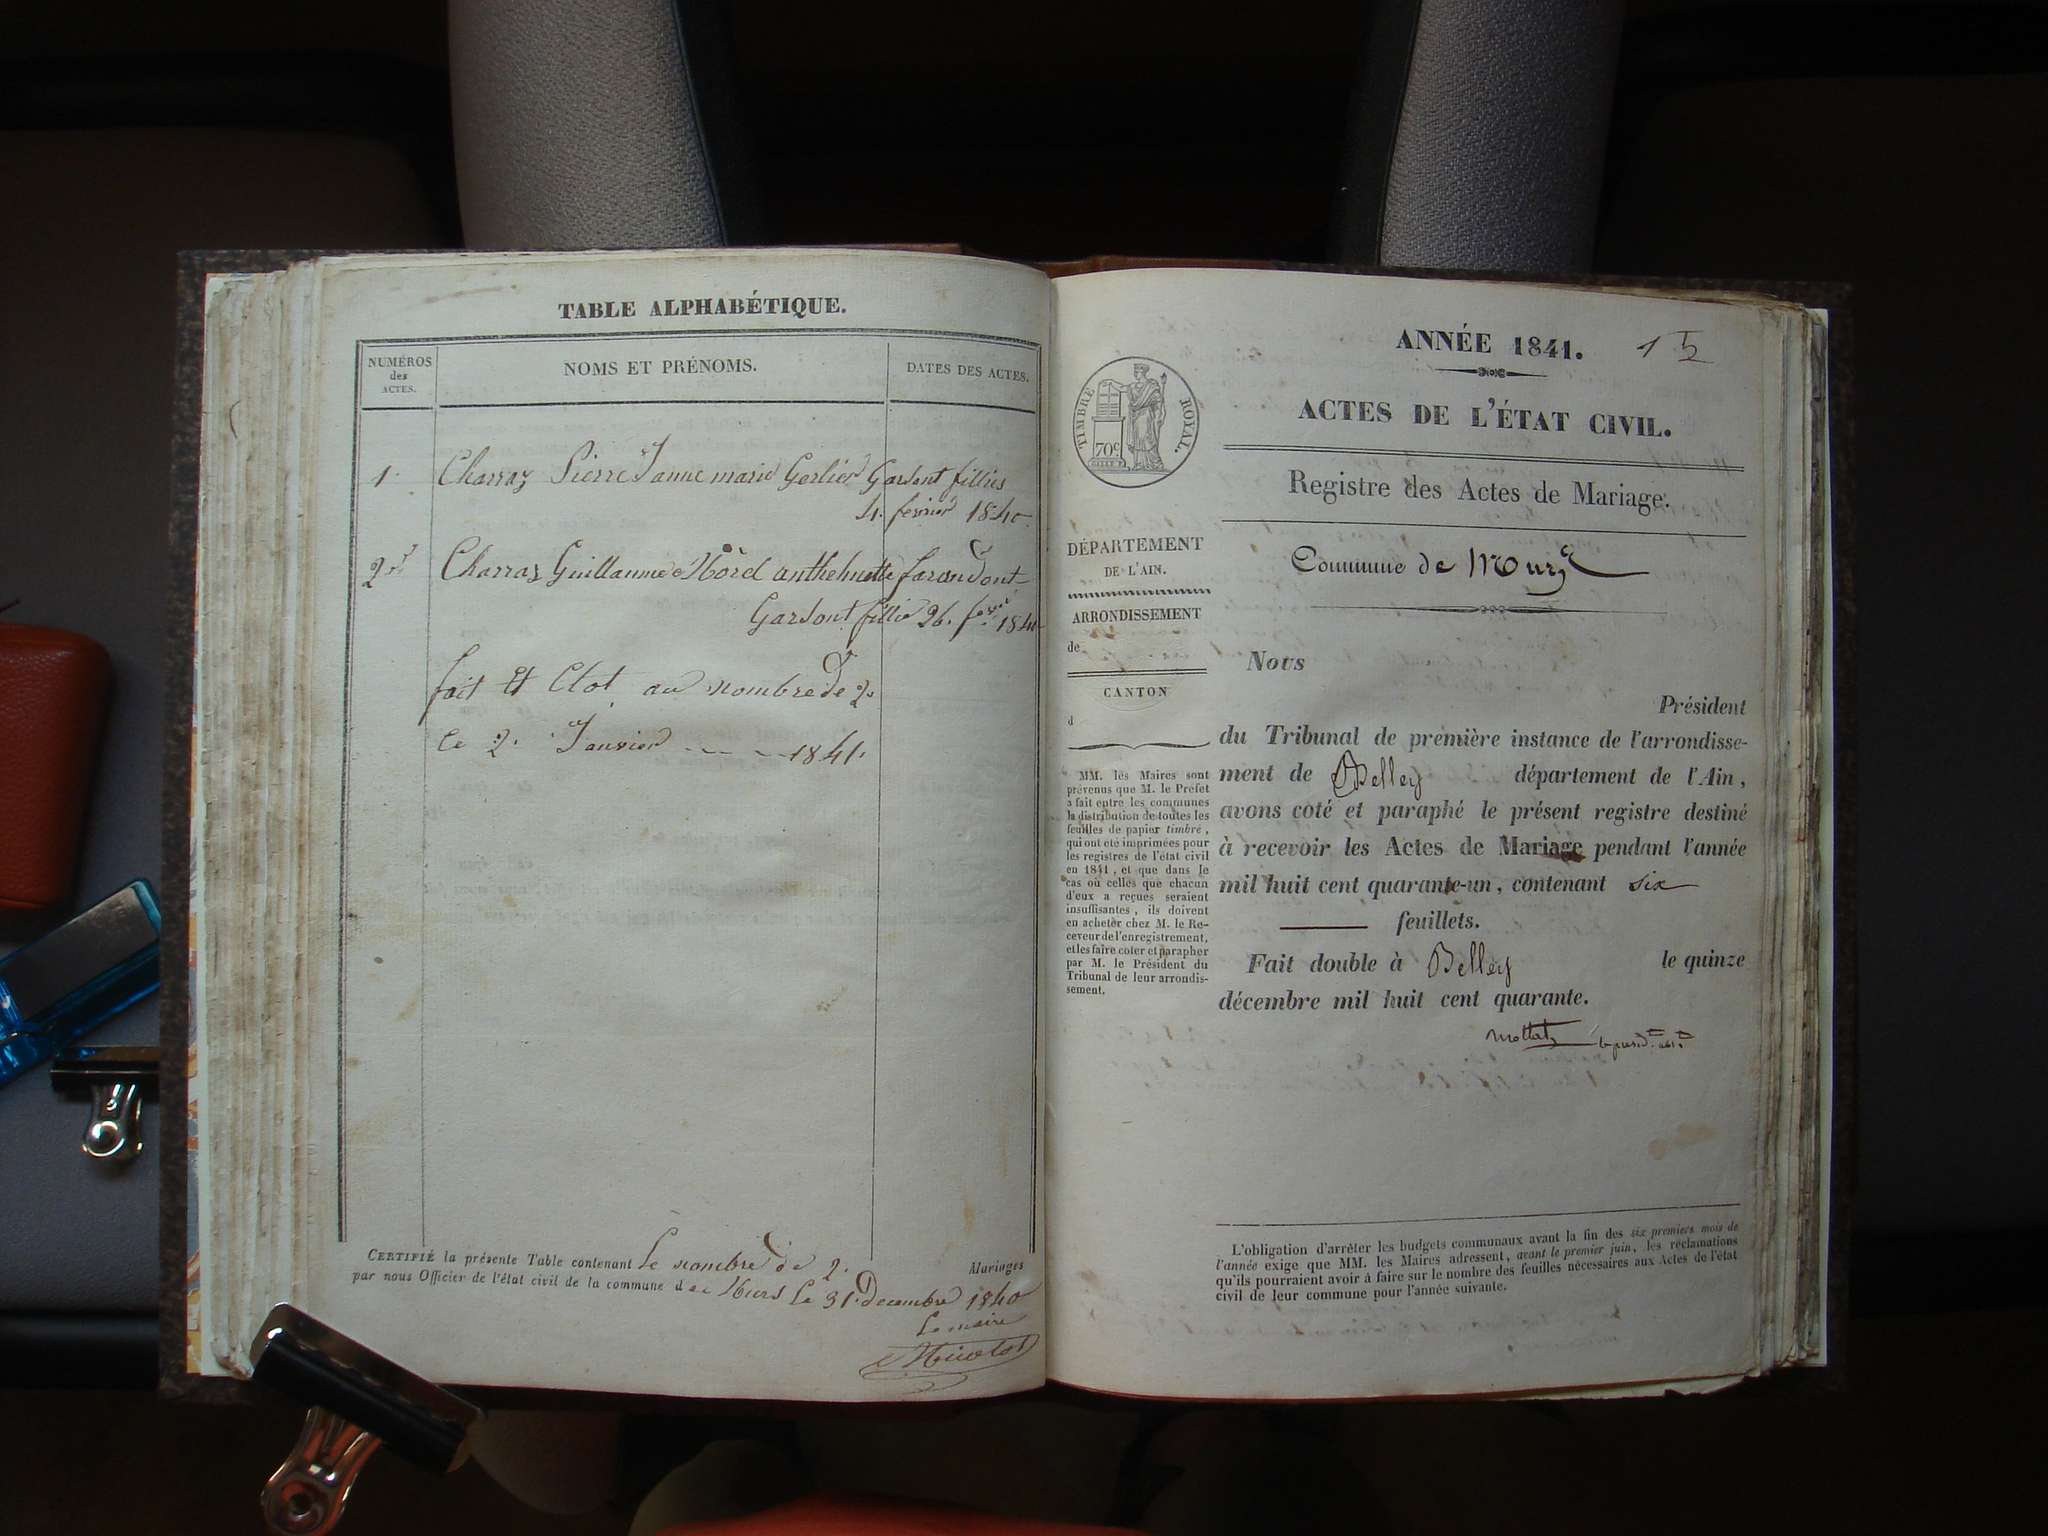 TABLE ALPHABÉTIQUE.
NUMÉROS
des
ACTES.
NOMS ET PRÉNOMS.
DATES DES ACTES.
1. Charraz Pierre Janne marie Gerlier Garsont fillies
4. fevrier 1840
2. Charras Guillaume anthelmette farandont
Garsont fillie 26. 1840
fait Et Clot au nombre de 2.
le 2. Janvier - - - - 1841.
CERTIFIÉ la présente Table contenant Le nombre de 2. Mariages
par nous Officier de l'état civil de la commune de Murs Le 31. Decembre 1840
Le maire
Nicolot
ANNÉE 1841. 15
ACTES DE L'ÉTAT CIVIL.
Registre des Actes de Mariage.
Commune de Murs
TIMBRE ROYAL.
70c
DÉPARTEMENT
DE L'AIN.
ARRONDISSEMENT
de
CANTON
d
MM. les Maires sont
prévenus que M. le Préfet
a fait entre les communes
la distribution de toutes les
feuilles de papier timbré,
qui ont été imprimées pour
les registres de l'état civil
en 1841, et que dans le
cas où celles que chacun
d'eux a reçues seraient
insuffisantes, ils doivent
en acheter chez M. le Re-
ceveur de l'enregistrement,
et les faire coter et parapher
par M. le Président du
Tribunal de leur arrondis-
sement.
Nous
Président
du Tribunal de première instance de l'arrondisse-
ment de Belley département de l'Ain,
avons coté et paraphé le présent registre destiné
à recevoir les Actes de Mariage pendant l'année
mil huit cent quarante-un, contenant six
feuillets.
Fait double à Belley le quinze
décembre mil huit cent quarante.
L'obligation d'arrêter les budgets communaux avant la fin des six premiers mois de
l'année exige que MM. les Maires adressent, avant le premier juin, les réclamations
qu'ils pourraient avoir à faire sur le nombre des feuilles nécessaires aux Actes de l'état
civil de leur commune pour l'année suivante.